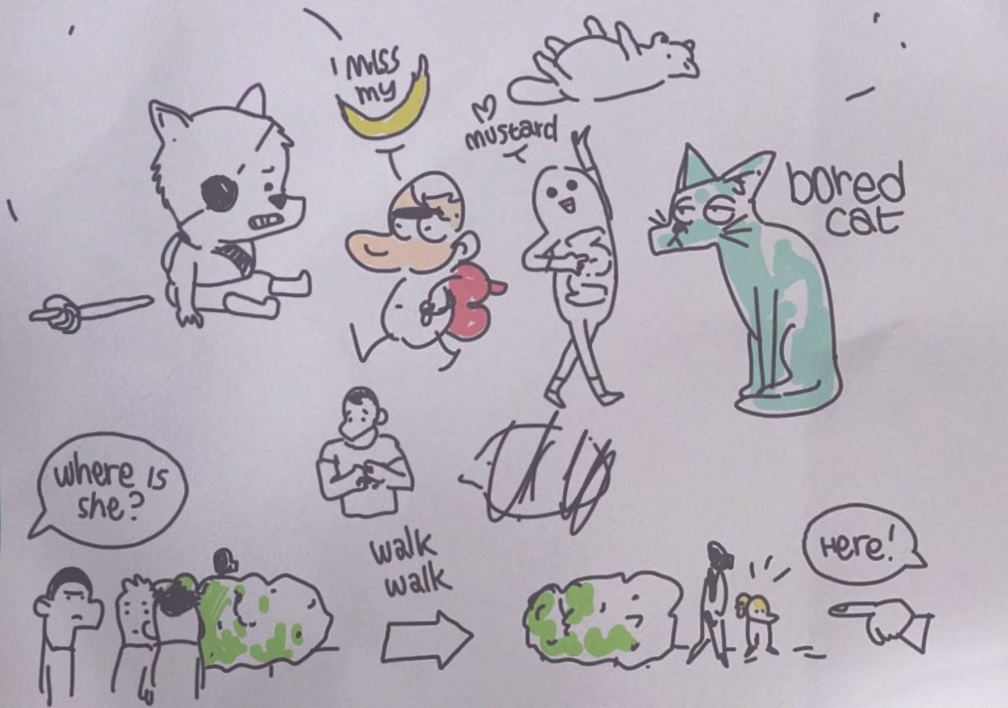 I miss
my
mustard
bored
cat
where is
she?
walk
walk
Here!